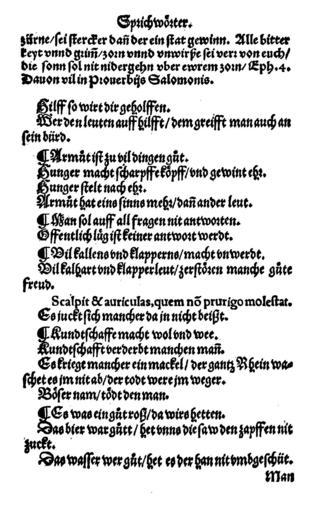 Sprichwörter.
zürne/sei stercker dañ der ein stat gewinn. Alle bitter
keyt vnnd grim̃/zorn vnnd vnwirße sei verr von euch/
die sonn sol nit nidergehn vber ewrem zorn/Eph.4.
Dauon vil in Prouerbijs Salomonis.
Hilff so wirt dir geholffen.
Wer den leuten auff hilfft/dem greifft man auch an
sein bürd.
¶ Armůt ist zu vil dingen gůt.
Hunger macht scharpffe köpff/vnd gewint ehr.
Hunger stelt nach ehr.
Armůt hat eins sinns mehr/dañ ander leut.
¶ Man sol auff all fragen nit antworten.
Offentlich lüg ist keiner antwort werdt.
¶ Vil kallens vnd klapperns/macht vnwerdt.
Vil kalhart vnd klapperleut/zerstören manche gůte
freud.
Scalpit & auriculas,quem nõ prurigo molestat.
Es juckt sich mancher da jn nicht beißt.
¶ Kundtschaffe macht wol vnd wee.
Kundtschafft verderbt manchen mañ.
Es kriegt mancher ein mackel/der gantz Rhein wa-
schet es jm nit ab/der todt were jm weger.
Böser nam/tödt den man.
¶ Es was ein gůt roß/da wirs hetten.
Das bier war gůtt/het vnns die saw den zapffen nit
zuckt.
Das wasser wer gůt/het es der han nit vmbgeschüt.
Man